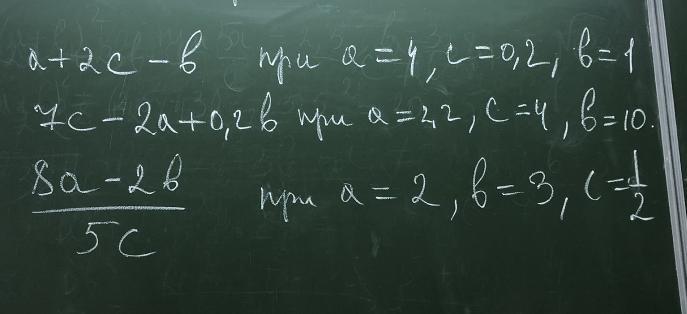 a+2c-b при a=4, c=0,2, b=1
7c-2a+0,2b при a=2,2, c=4, b=10.
8a-2b/5c при a=2, b=3, c=1/2